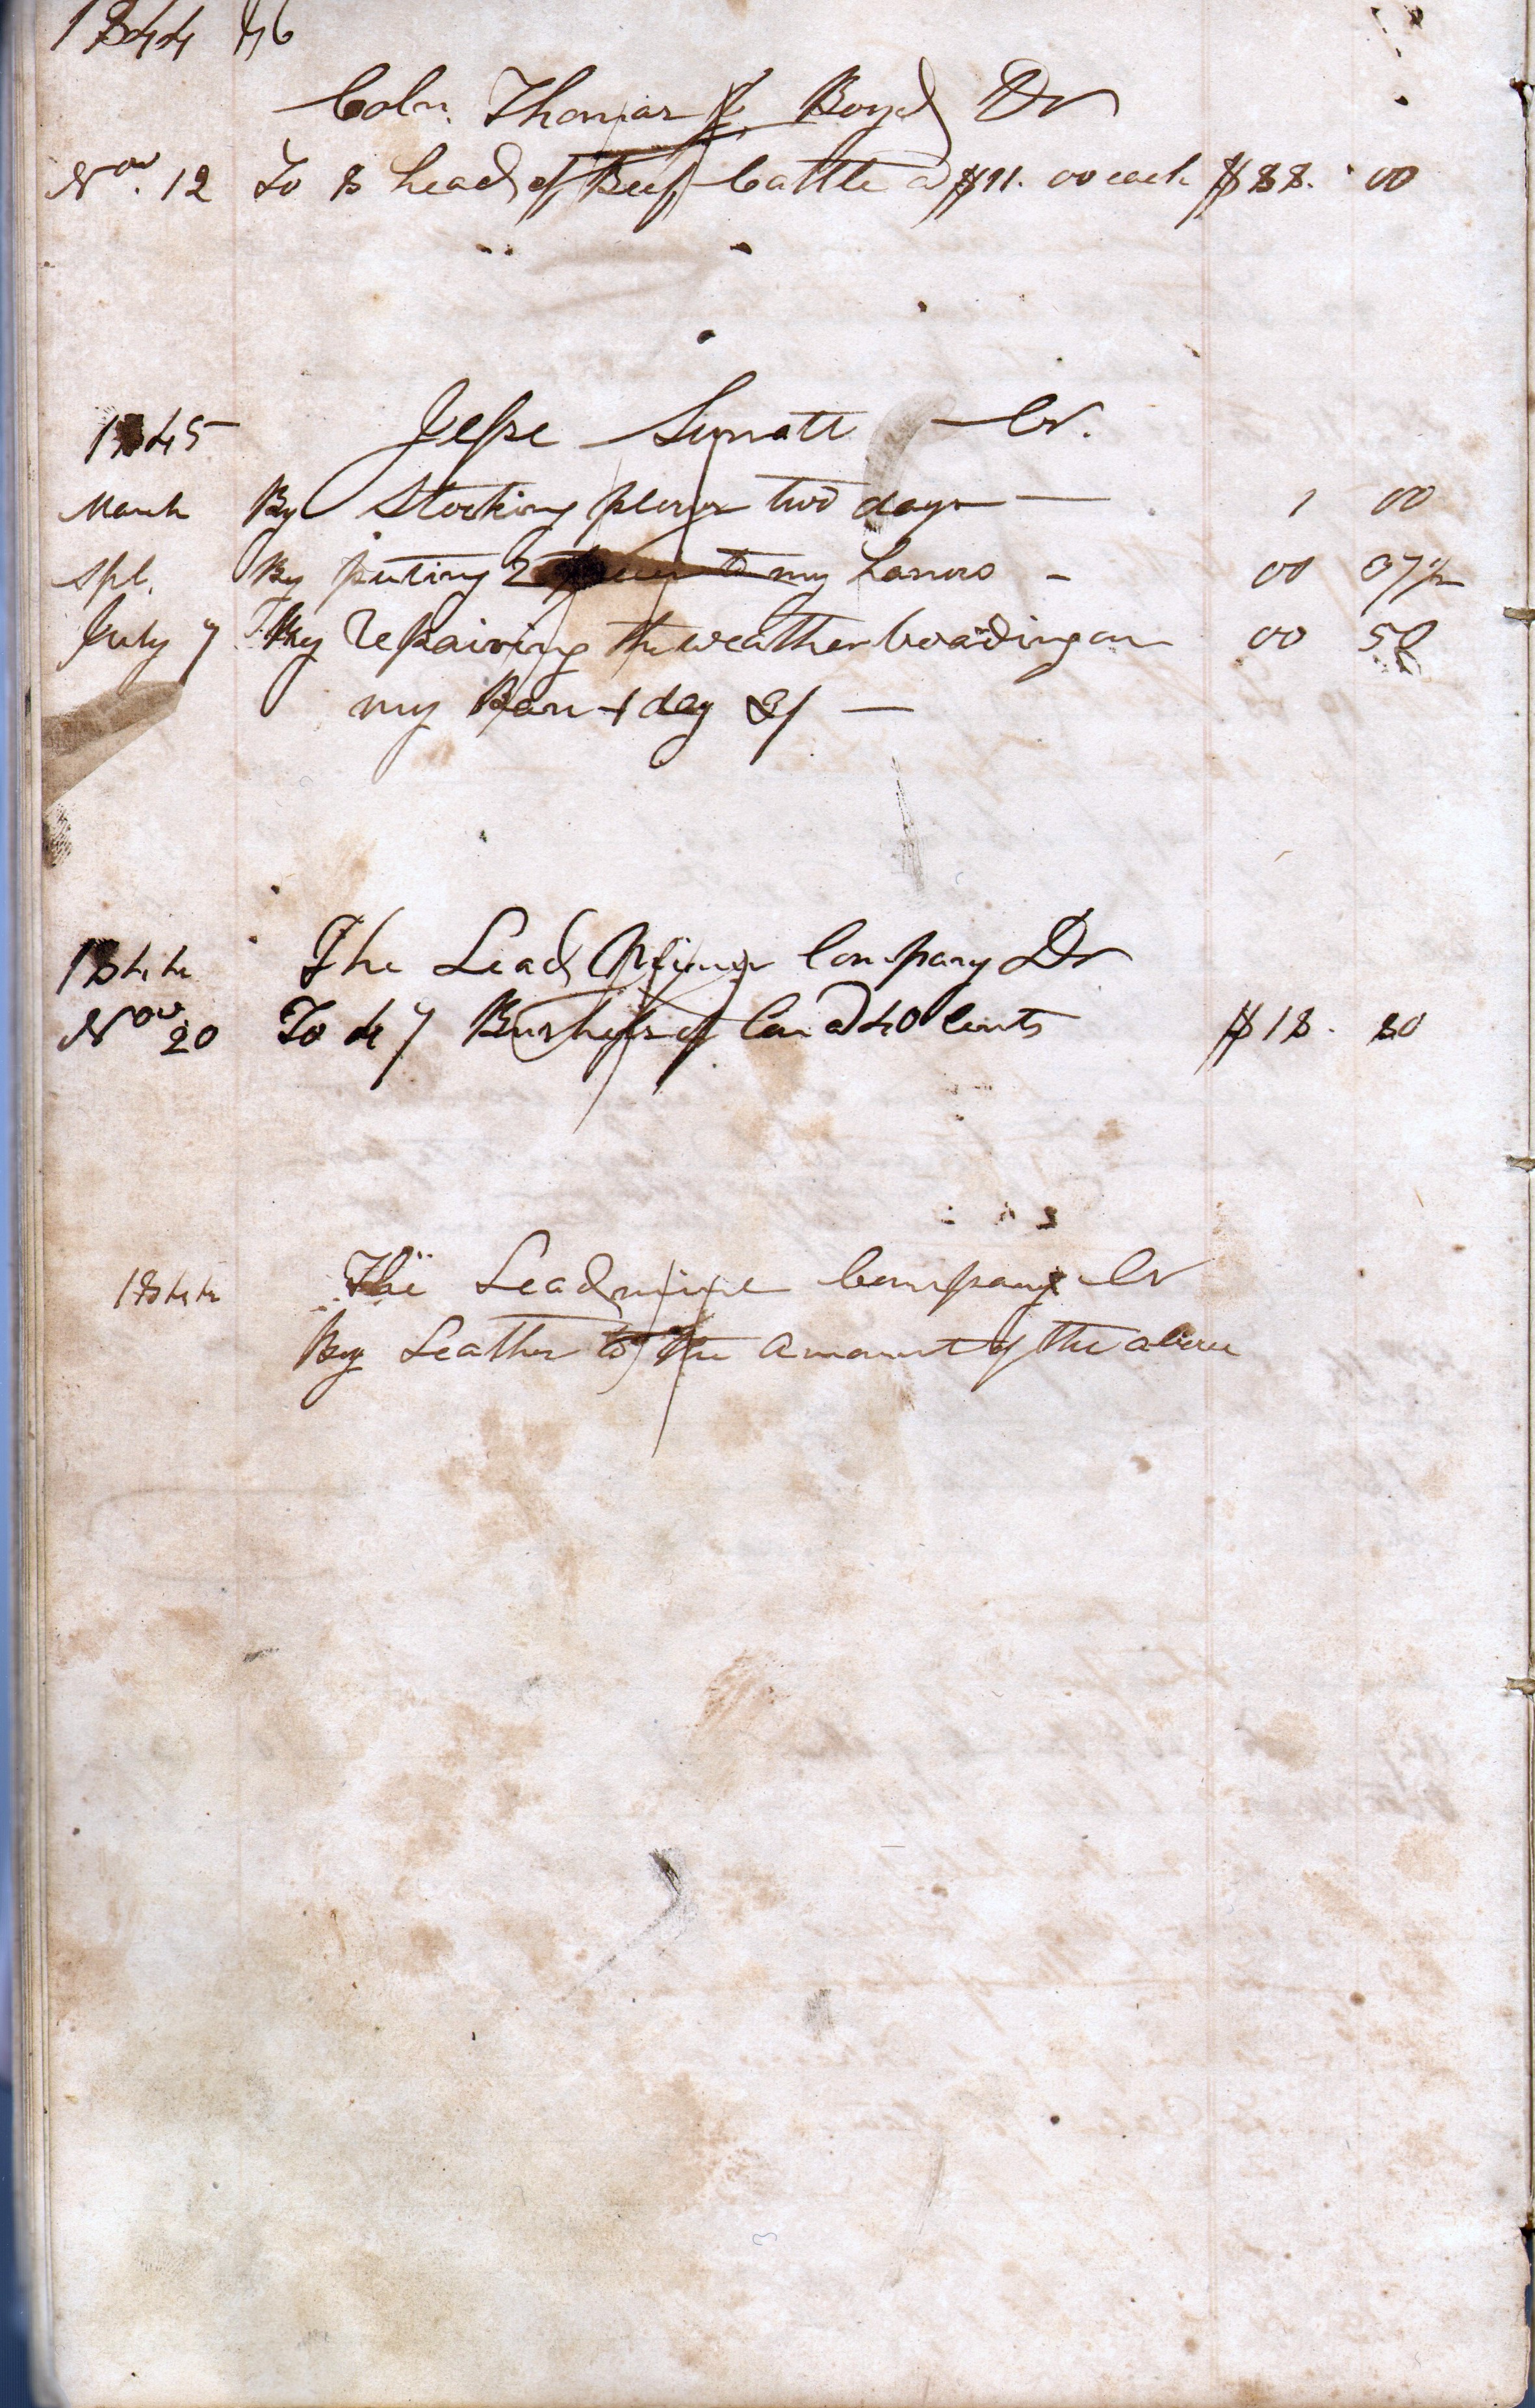 1844 46
Coln. Thomas J. Boyd Dr
Nov. 12 To 8 head of Beef Cattle @ $11.00 each $88. 00
1845 Jesse Surratt Cr.
March By Stocking plows two days — 1 00
Apl. By puting 2 to my harrows - 00 37½
July 7 By Repairing the weatherboarding on 00 50
my Barn 1 day &c —
1844 The Lead Mines Company Dr
Nov 20 To 47 Bushels of Corn @ 40 Cents $18. 80
1844 The Leadmine Company Cr
By Leather to the Amount of the above